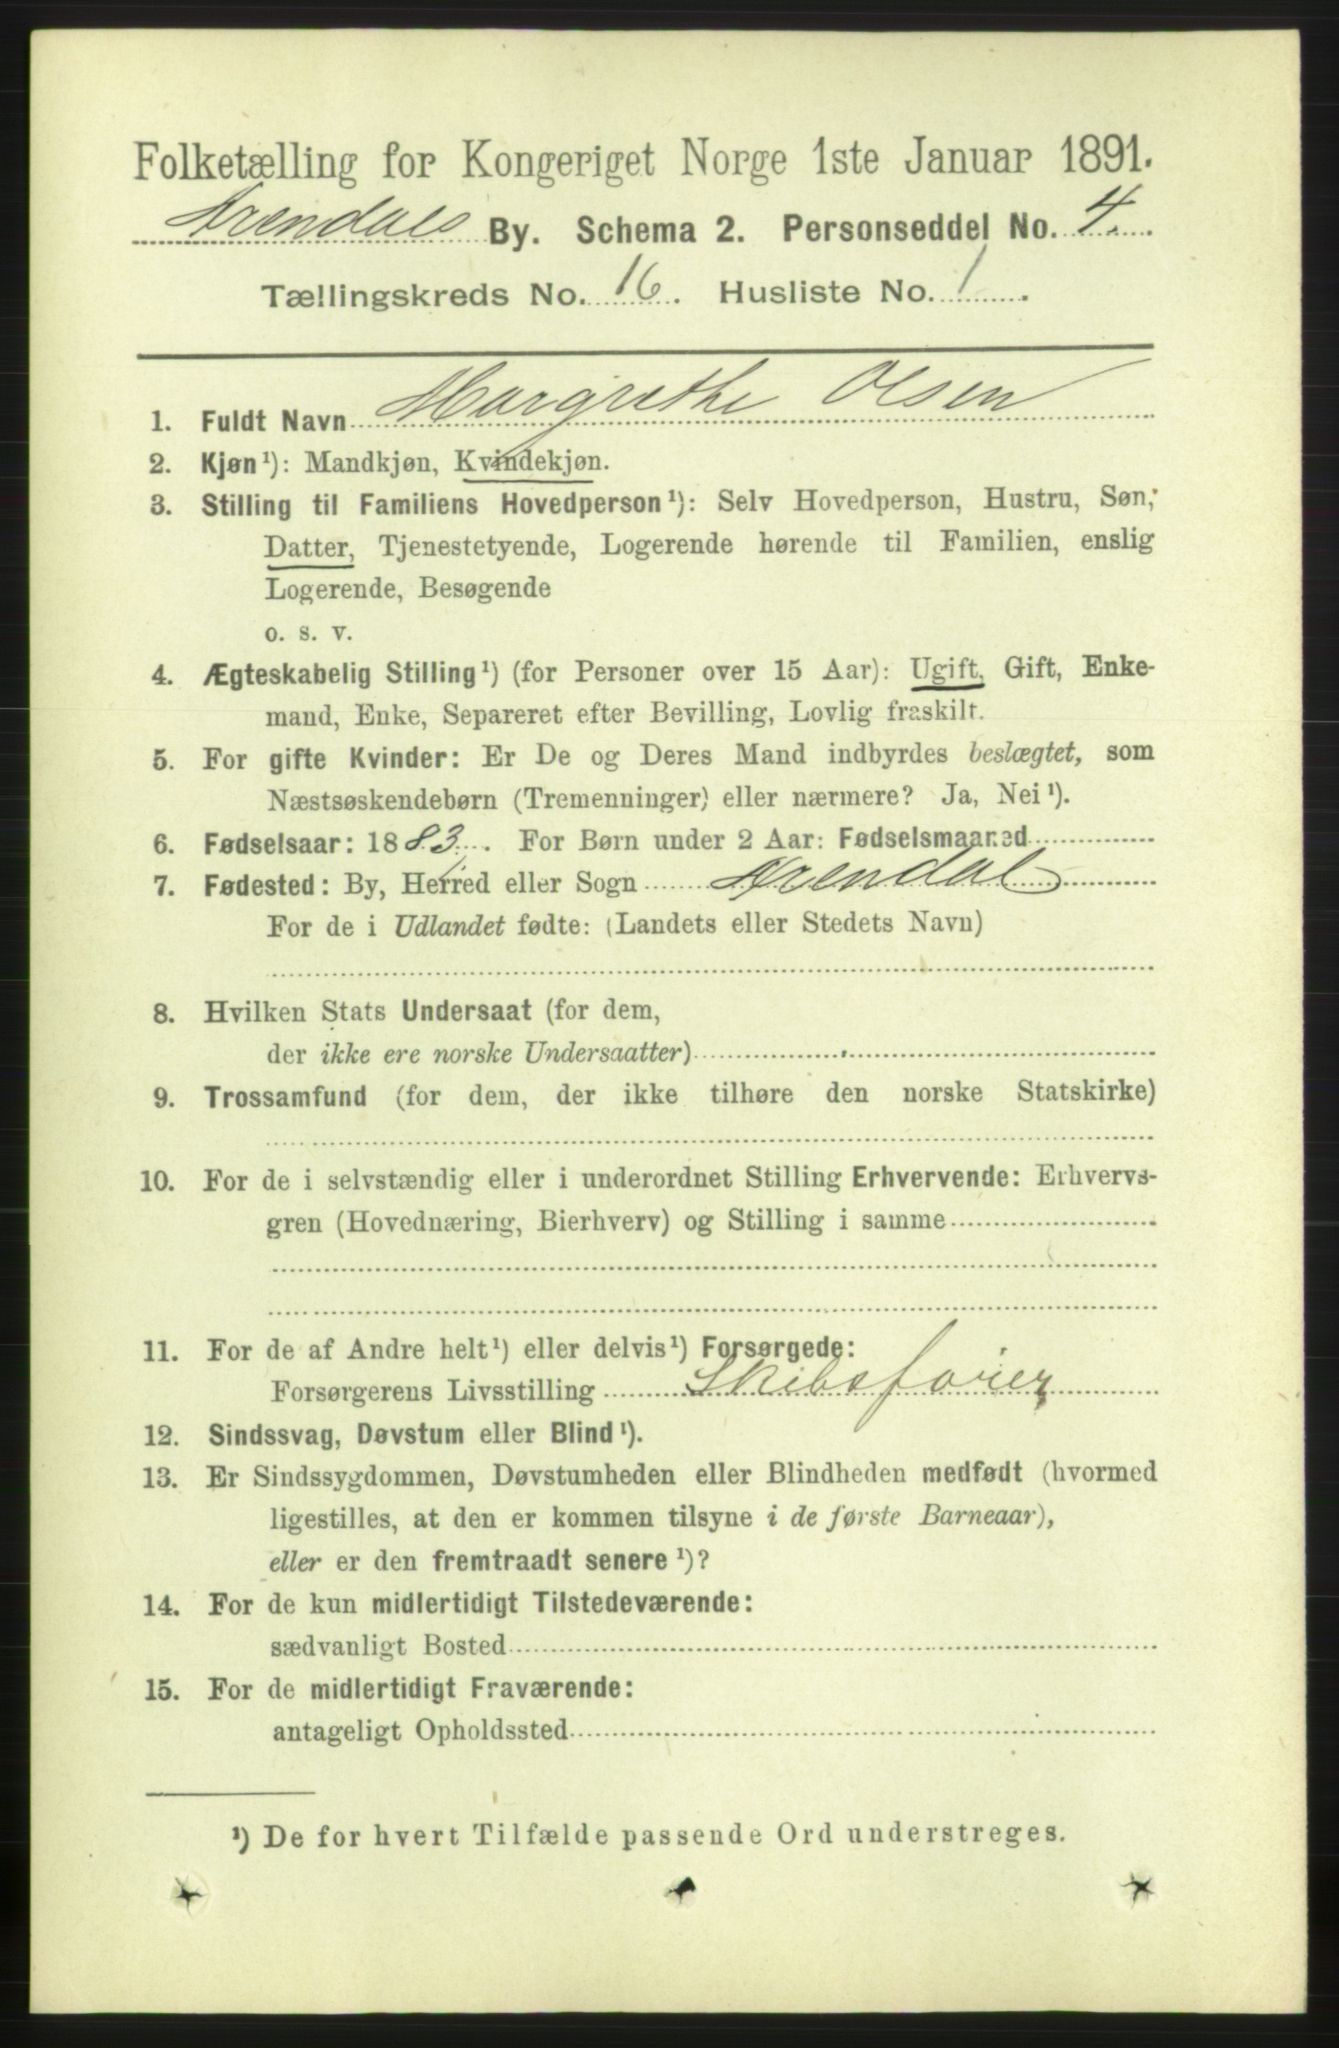 Folketælling for Kongeriget Norge 1ste Januar 1891.
Arendals By. Schema 2. Personseddel No. 4.
Tællingskreds No. 16. Husliste No. 1.
1. Fuldt Navn Margrethe Olsen
2. Kjøn¹): Mandkjøn, Kvindekjøn.
3. Stilling til Familiens Hovedperson¹): Selv Hovedperson, Hustru, Søn,
Datter, Tjenestetyende, Logerende hørende til Familien, enslig
Logerende, Besøgende
o. s. v.
4. Ægteskabelig Stilling¹) (for Personer over 15 Aar): Ugift, Gift, Enke-
mand, Enke, Separeret efter Bevilling, Lovlig fraskilt.
5. For gifte Kvinder: Er De og Deres Mand indbyrdes beslægtet, som
Næstsøskendebørn (Tremenninger) eller nærmere? Ja, Nei¹).
6. Fødselsaar: 1883. For Børn under 2 Aar: Fødselsmaaned
7. Fødested: By, Herred eller Sogn Arendal
For de i Udlandet fødte: (Landets eller Stedets Navn)
8. Hvilken Stats Undersaat (for dem,
der ikke ere norske Undersaatter)
9. Trossamfund (for dem, der ikke tilhøre den norske Statskirke)
10. For de i selvstændig eller i underordnet Stilling Erhvervende: Erhvervs-
gren (Hovednæring, Bierhverv) og Stilling i samme
11. For de af Andre helt¹) eller delvis¹) Forsørgede:
Forsørgerens Livsstilling Skibsfører
12. Sindssvag, Døvstum eller Blind¹).
13. Er Sindssygdommen, Døvstumheden eller Blindheden medfødt (hvormed
ligestilles, at den er kommen tilsyne i de første Barneaar),
eller er den fremtraadt senere¹)?
14. For de kun midlertidigt Tilstedeværende:
sædvanligt Bosted
15. For de midlertidigt Fraværende:
antageligt Opholdssted
¹) De for hvert Tilfælde passende Ord understreges.